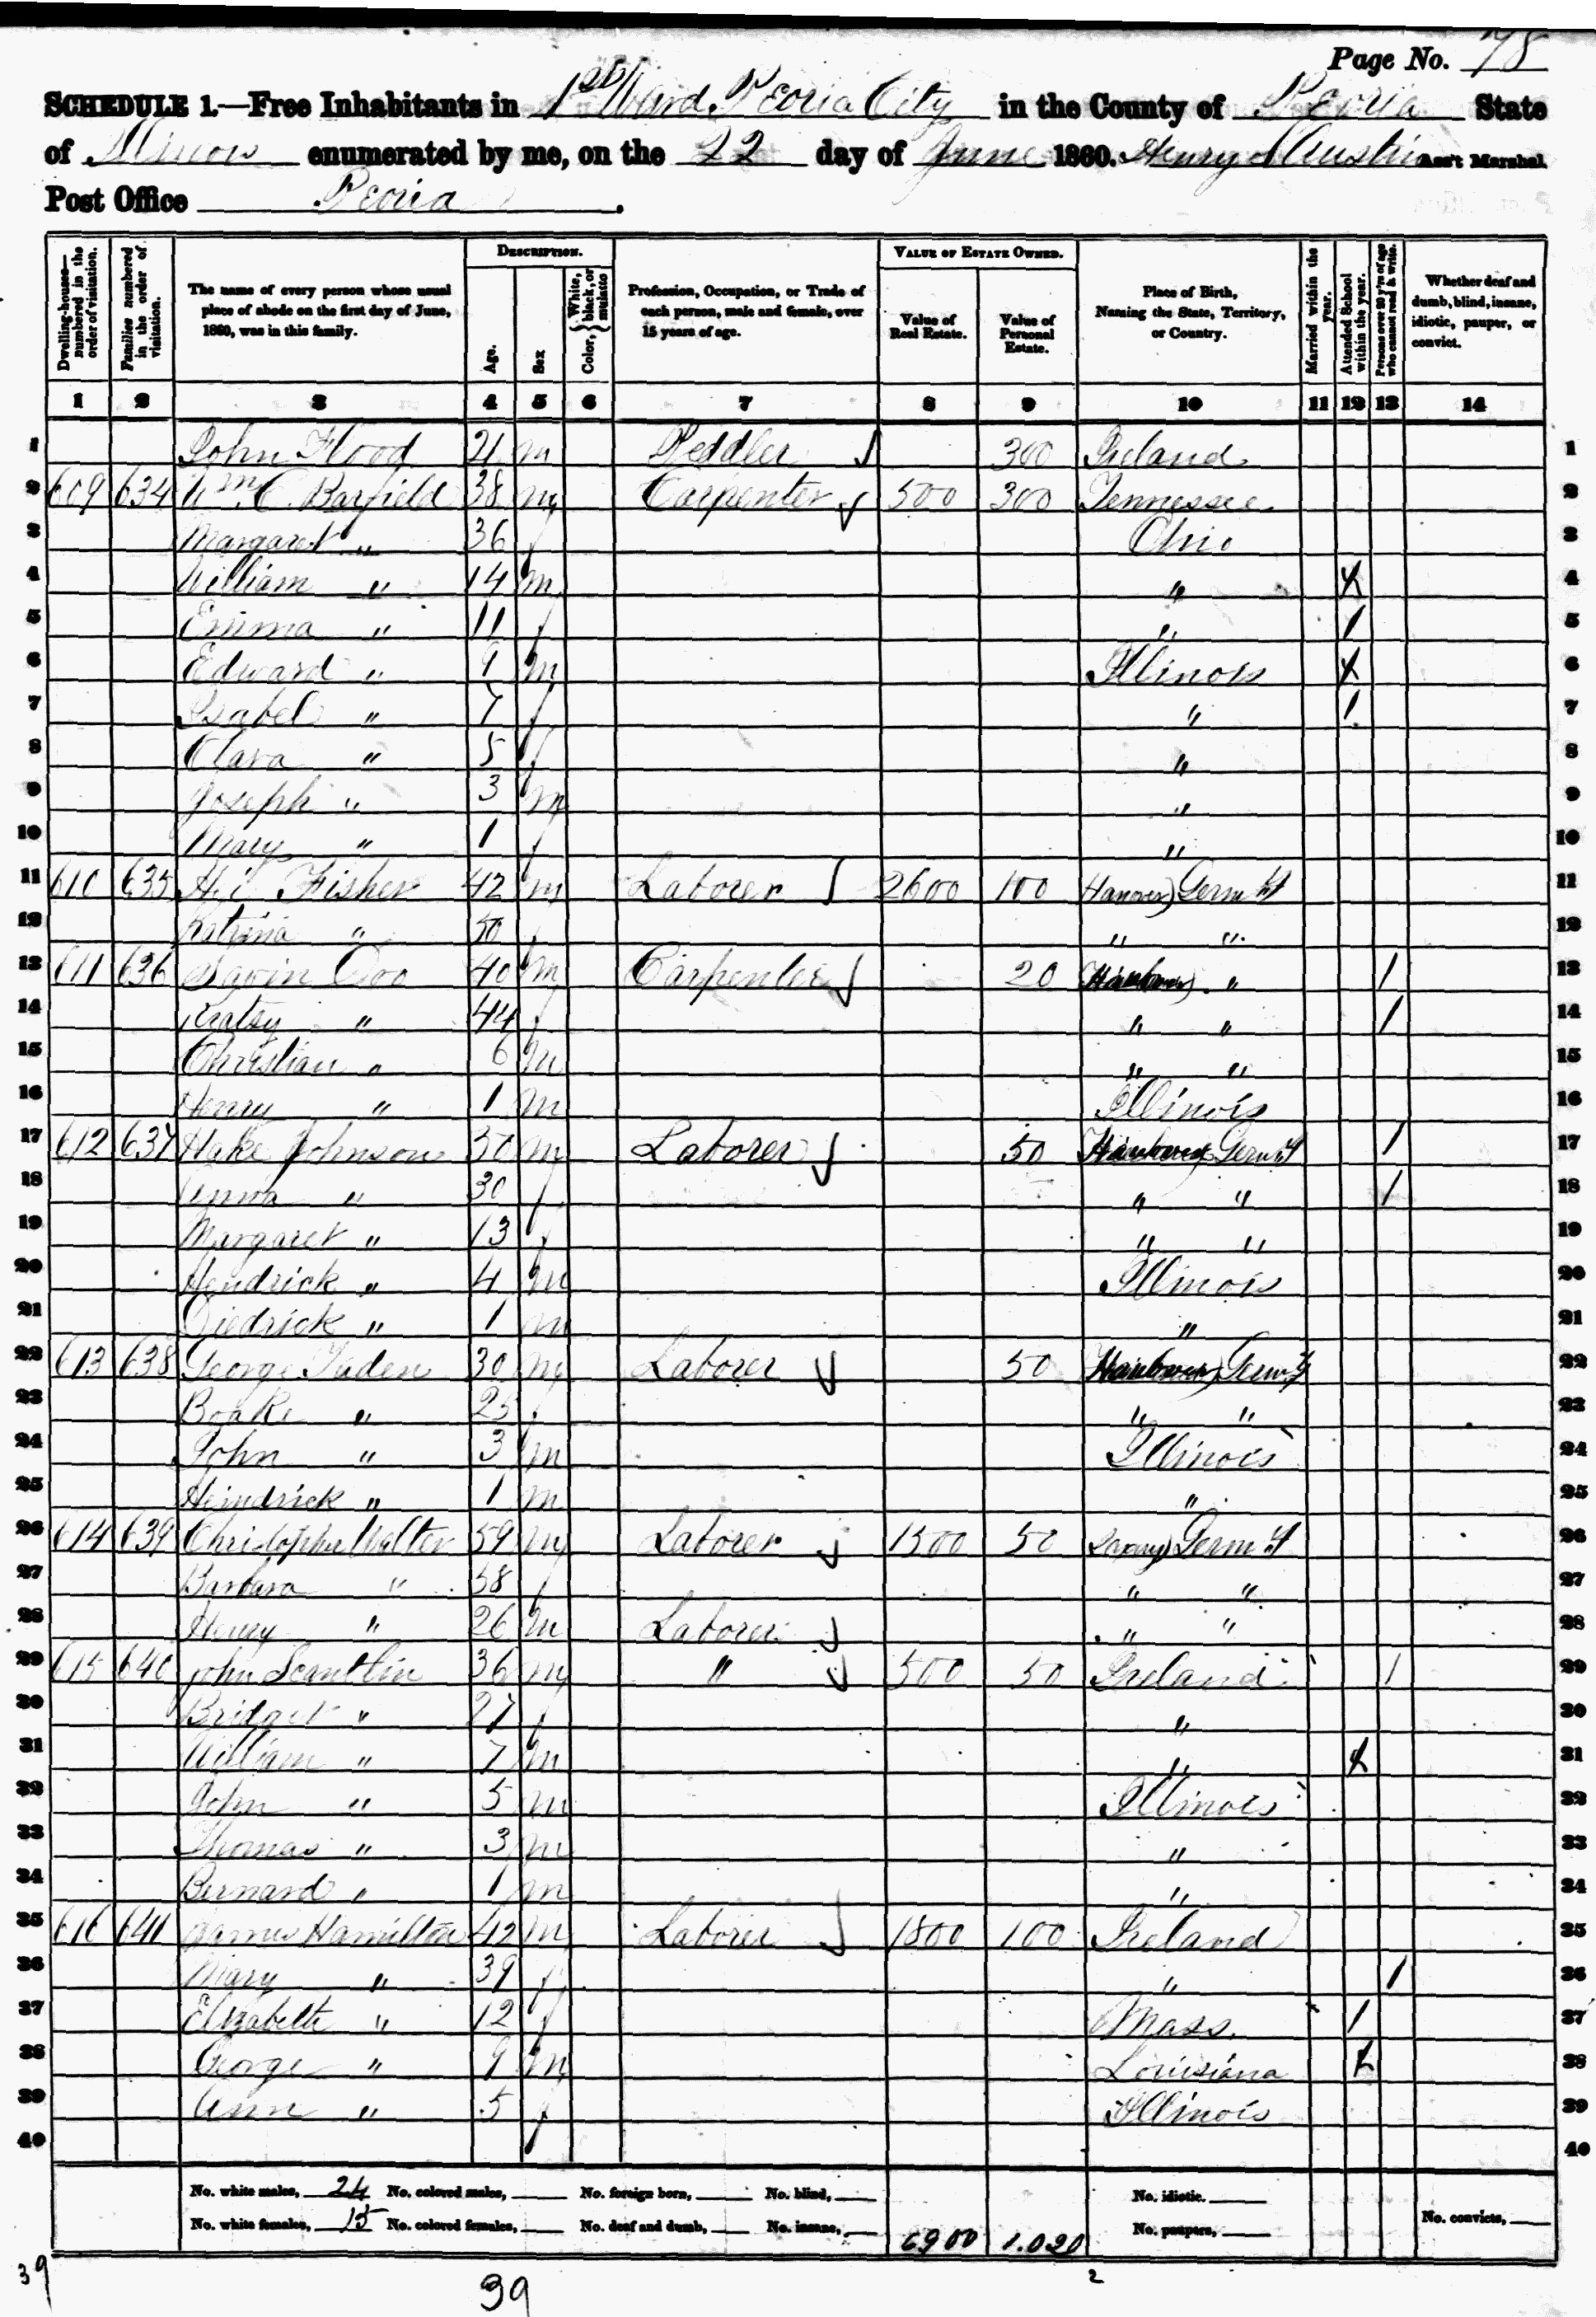 Page No. 78
SCHEDULE 1.—Free Inhabitants in 1st Ward Peoria City in the County of Peoria State
of Illinois enumerated by me, on the 22 day of June 1860. Henry Austin Ass't Marshal.
Post Office Peoria.
Dwelling-houses—numbered in the order of visitation.
Families numbered in the order of visitation.
The name of every person whose usual place of abode on the first day of June, 1860, was in this family.
DESCRIPTION.
Age.
Sex
Color, {White, black, or mulatto
Profession, Occupation, or Trade of each person, male and female, over 15 years of age.
VALUE OF ESTATE OWNED.
Value of Real Estate.
Value of Personal Estate.
Place of Birth, Naming the State, Territory, or Country.
Married within the year.
Attended School within the year.
Persons over 20 y'rs of age who cannot read & write.
Whether deaf and dumb, blind, insane, idiotic, pauper, or convict.
1 2 3 4 5 6 7 8 9 10 11 12 13 14
1 John Flood 21 m Peddler 300 Ireland 1
2 609 634 Wm C. Barfield 38 m Carpenter 500 300 Tennessee 2
3 Margaret " 36 f Ohio 3
4 William " 14 m " X 4
5 Emma " 11 f " / 5
6 Edward " 9 m Illinois X 6
7 Isabel " 7 f " / 7
8 Clara " 5 f " 8
9 Joseph " 3 m " 9
10 Mary " 1 f " 10
11 610 635 Fisher 42 m Laborer 2600 100 Hanover) Germ'y 11
12 " 50 f " " 12
13 611 636 40 m Carpenter 20 " / 13
14 " 44 f " " / 14
15 Christian " 6 m " " 15
16 Henry " 1 m Illinois 16
17 612 637 Hake Johnson 30 m Laborer 50 Germ'y / 17
18 Anna " 30 f " " / 18
19 Margaret " 13 f " " 19
20 Hendrick " 4 m Illinois 20
21 Diedrick " 1 m " 21
22 613 638 George 30 m Laborer 50 Germ'y 22
23 " 25 f " " 23
24 John " 3 m Illinois 24
25 Heindrick " 1 m " 25
26 614 639 Christopher Walter 59 m Laborer 1500 50 Germ'y 26
27 Barbara " 58 f " " 27
28 Henry " 26 m Laborer " " 28
29 615 640 John Scantlin 36 m " 500 50 Ireland / 29
30 Bridget " 27 f " 30
31 William " 7 m " X 31
32 John " 5 m Illinois 32
33 Thomas " 3 m " 33
34 Bernard " 1 m " 34
35 616 641 James Hamilton 42 m Laborer 1800 100 Ireland 35
36 Mary " 39 f " / 36
37 Elizabeth " 12 f Mass. / 37
38 George " 9 m Louisiana X 38
39 Ann " 5 f Illinois 39
40 40
No. white males, 24 No. colored males, No. foreign born, No. blind, No. idiotic.
No. white females, 15 No. colored females, No. deaf and dumb, No. insane, 6900 1.020 No. paupers, No. convicts,
39 39 2